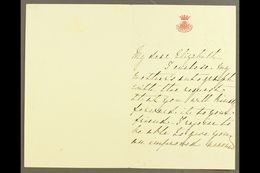 My dear Elizabeth
I enclose my
mother's autograph
with the request
that you will kindly
forward it to your
friend. I rejoice to
be able to give you
an improved account